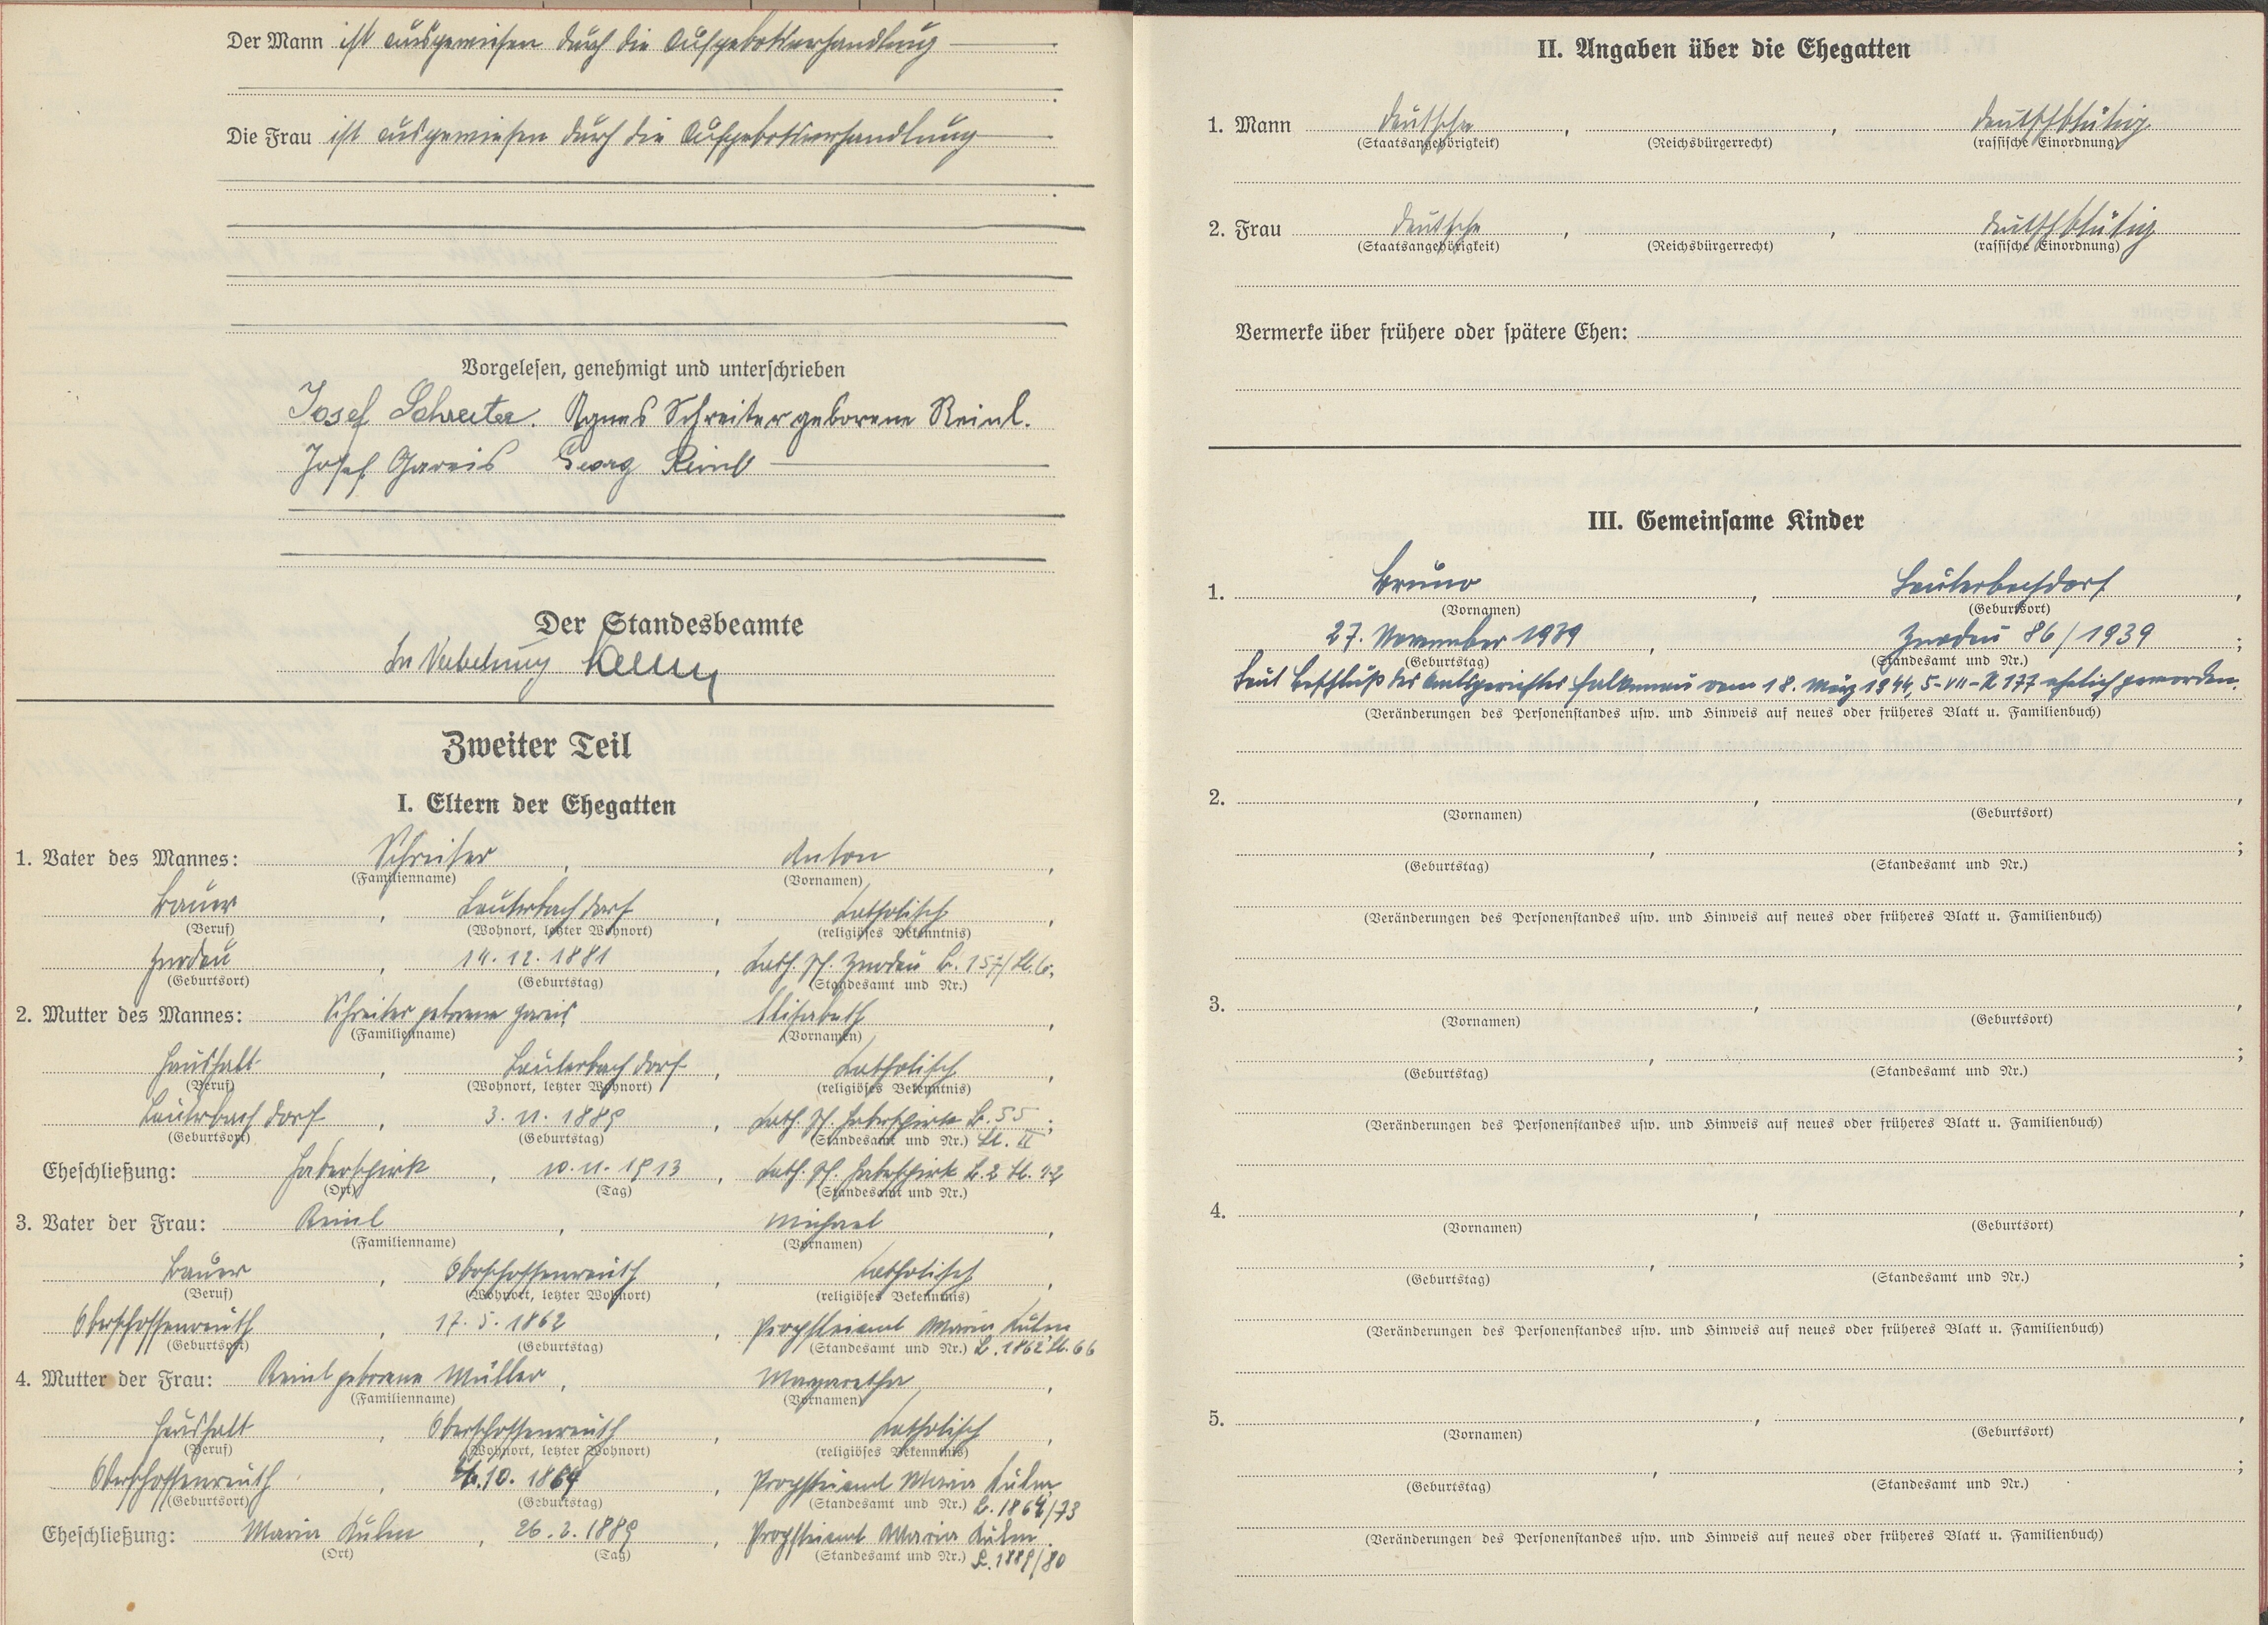 Der Mann ist ausgewiesen durch die Aufgebotsverhandlung
Die Frau ist ausgewiesen durch die Aufgebotsverhandlung
Vorgelesen, genehmigt und unterschrieben
Josef Schreiter. Agnes Schreiter geborene Reinl.
Josef Gareis Georg Reinl
Der Standesbeamte
In Vertretung
Zweiter Teil
I. Eltern der Ehegatten
1. Vater des Mannes: Schreiter, Anton,
(Familienname) (Vornamen)
Bauer, Lauterbach Dorf, katholisch,
(Beruf) (Wohnort, letzter Wohnort) (religiöses Bekenntnis)
Zwodau, 14.12.1881, kath. Pf. Zwodau B. 157/Bl. 6;
(Geburtsort) (Geburtstag) (Standesamt und Nr.)
2. Mutter des Mannes: Schreiter geborene Gareis Elisabeth,
(Familienname) (Vornamen)
Haushalt, Lauterbach Dorf, katholisch,
(Beruf) (Wohnort, letzter Wohnort) (religiöses Bekenntnis)
Lauterbach Dorf, 3.11.1889, kath. Pf. Haberspirk B. 55;
(Geburtsort) (Geburtstag) (Standesamt und Nr.) Bl. II
Eheschließung: Haberspirk, 10.11.1913, kath. Pf. Haberspirk B. 2 Bl. 42
(Ort) (Tag) (Standesamt und Nr.)
3. Vater der Frau: Reinl, Michael,
(Familienname) (Vornamen)
Bauer, Oberschossenreuth, katholisch,
(Beruf) (Wohnort, letzter Wohnort) (religiöses Bekenntnis)
Oberschossenreuth, 17.5.1862, Propsteiamt Maria Kulm
(Geburtsort) (Geburtstag) (Standesamt und Nr.) B. 1862 Bl. 66
4. Mutter der Frau: Reinl geborene Müller, Margaretha,
(Familienname) (Vornamen)
Haushalt, Oberschossenreuth, katholisch,
(Beruf) (Wohnort, letzter Wohnort) (religiöses Bekenntnis)
Oberschossenreuth, .10.1864, Propsteiamt Maria Kulm
(Geburtsort) (Geburtstag) (Standesamt und Nr.) B. 1864/73
Eheschließung: Maria Kulm, 26.2.1889, Propsteiamt Maria Kulm.
(Ort) (Tag) (Standesamt und Nr.) B. 1889/80
II. Angaben über die Ehegatten
1. Mann deutsche, , deutschblütig
(Staatsangehörigkeit) (Reichsbürgerrecht) (rassische Einordnung)
2. Frau deutsche, , deutschblütig
(Staatsangehörigkeit) (Reichsbürgerrecht) (rassische Einordnung)
Vermerke über frühere oder spätere Ehen:
III. Gemeinsame Kinder
1. Bruno, Lauterbachdorf,
(Vornamen) (Geburtsort)
27. November 1939, Zwodau 86/1939;
(Geburtstag) (Standesamt und Nr.)
Laut Beschluß des Amtsgerichtes Falkenau vom 18. März 1944, 5-VII-R 177 ehelich geworden.
(Veränderungen des Personenstandes usw. und Hinweis auf neues oder früheres Blatt u. Familienbuch)
2. , ,
(Vornamen) (Geburtsort)
, ;
(Geburtstag) (Standesamt und Nr.)
(Veränderungen des Personenstandes usw. und Hinweis auf neues oder früheres Blatt u. Familienbuch)
3. , ,
(Vornamen) (Geburtsort)
, ;
(Geburtstag) (Standesamt und Nr.)
(Veränderungen des Personenstandes usw. und Hinweis auf neues oder früheres Blatt u. Familienbuch)
4. , ,
(Vornamen) (Geburtsort)
, ;
(Geburtstag) (Standesamt und Nr.)
(Veränderungen des Personenstandes usw. und Hinweis auf neues oder früheres Blatt u. Familienbuch)
5. , ,
(Vornamen) (Geburtsort)
, ;
(Geburtstag) (Standesamt und Nr.)
(Veränderungen des Personenstandes usw. und Hinweis auf neues oder früheres Blatt u. Familienbuch)